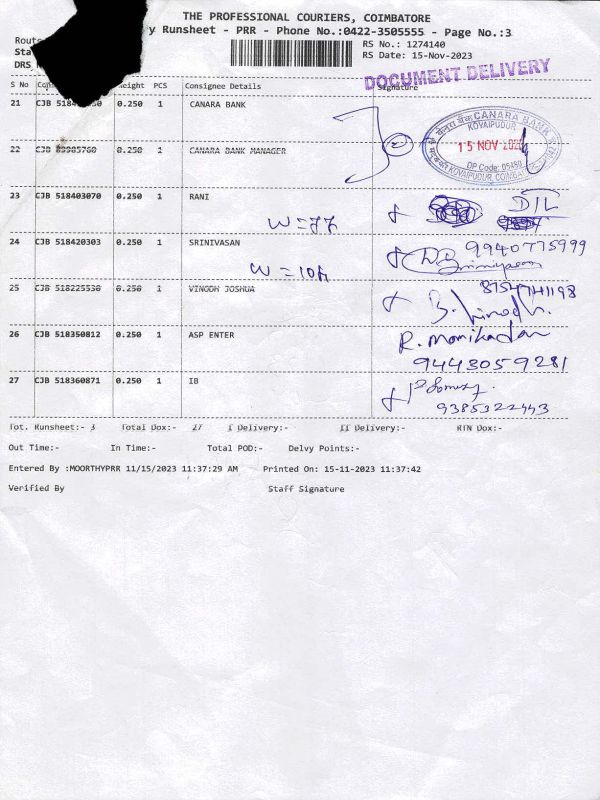 THE PROFESSIONAL COURIERS, COIMBATORE
y Runsheet - PRR - Phone No.:0422-3505555 - Page No.:3
RS No.: 1274140
RS Date: 15-Nov-2023
DOCUMENT DELIVERY
S No eight PCS Consignee Details Signature
21 CJB 0.250 1 CANARA BANK
CANARA BANK
KOVAIPUDUR
15 NOV
DP Code:
KOVAIPUDUR,
22 CJB 0.250 1 CANARA BANK MANAGER
23 CJB 518403070 0.250 1 RANI
DIL
24 CJB 518420303 0.250 1 SRINIVASAN
9940775999
25 CJB 518225530 0.250 1 VINODH JOSHUA
26 CJB 518350812 0.250 1 ASP ENTER
R. Manikadan
9443059281
27 CJB 518360871 0.250 1 IB
9385322443
Tot. Runsheet:- 3 Total Dox:- 27 I Delivery:- II Delivery:- RTN Dox:-
Out Time:- In Time:- Total POD:- Delvy Points:-
Entered By :MOORTHYPRR 11/15/2023 11:37:29 AM Printed On: 15-11-2023 11:37:42
Verified By Staff Signature